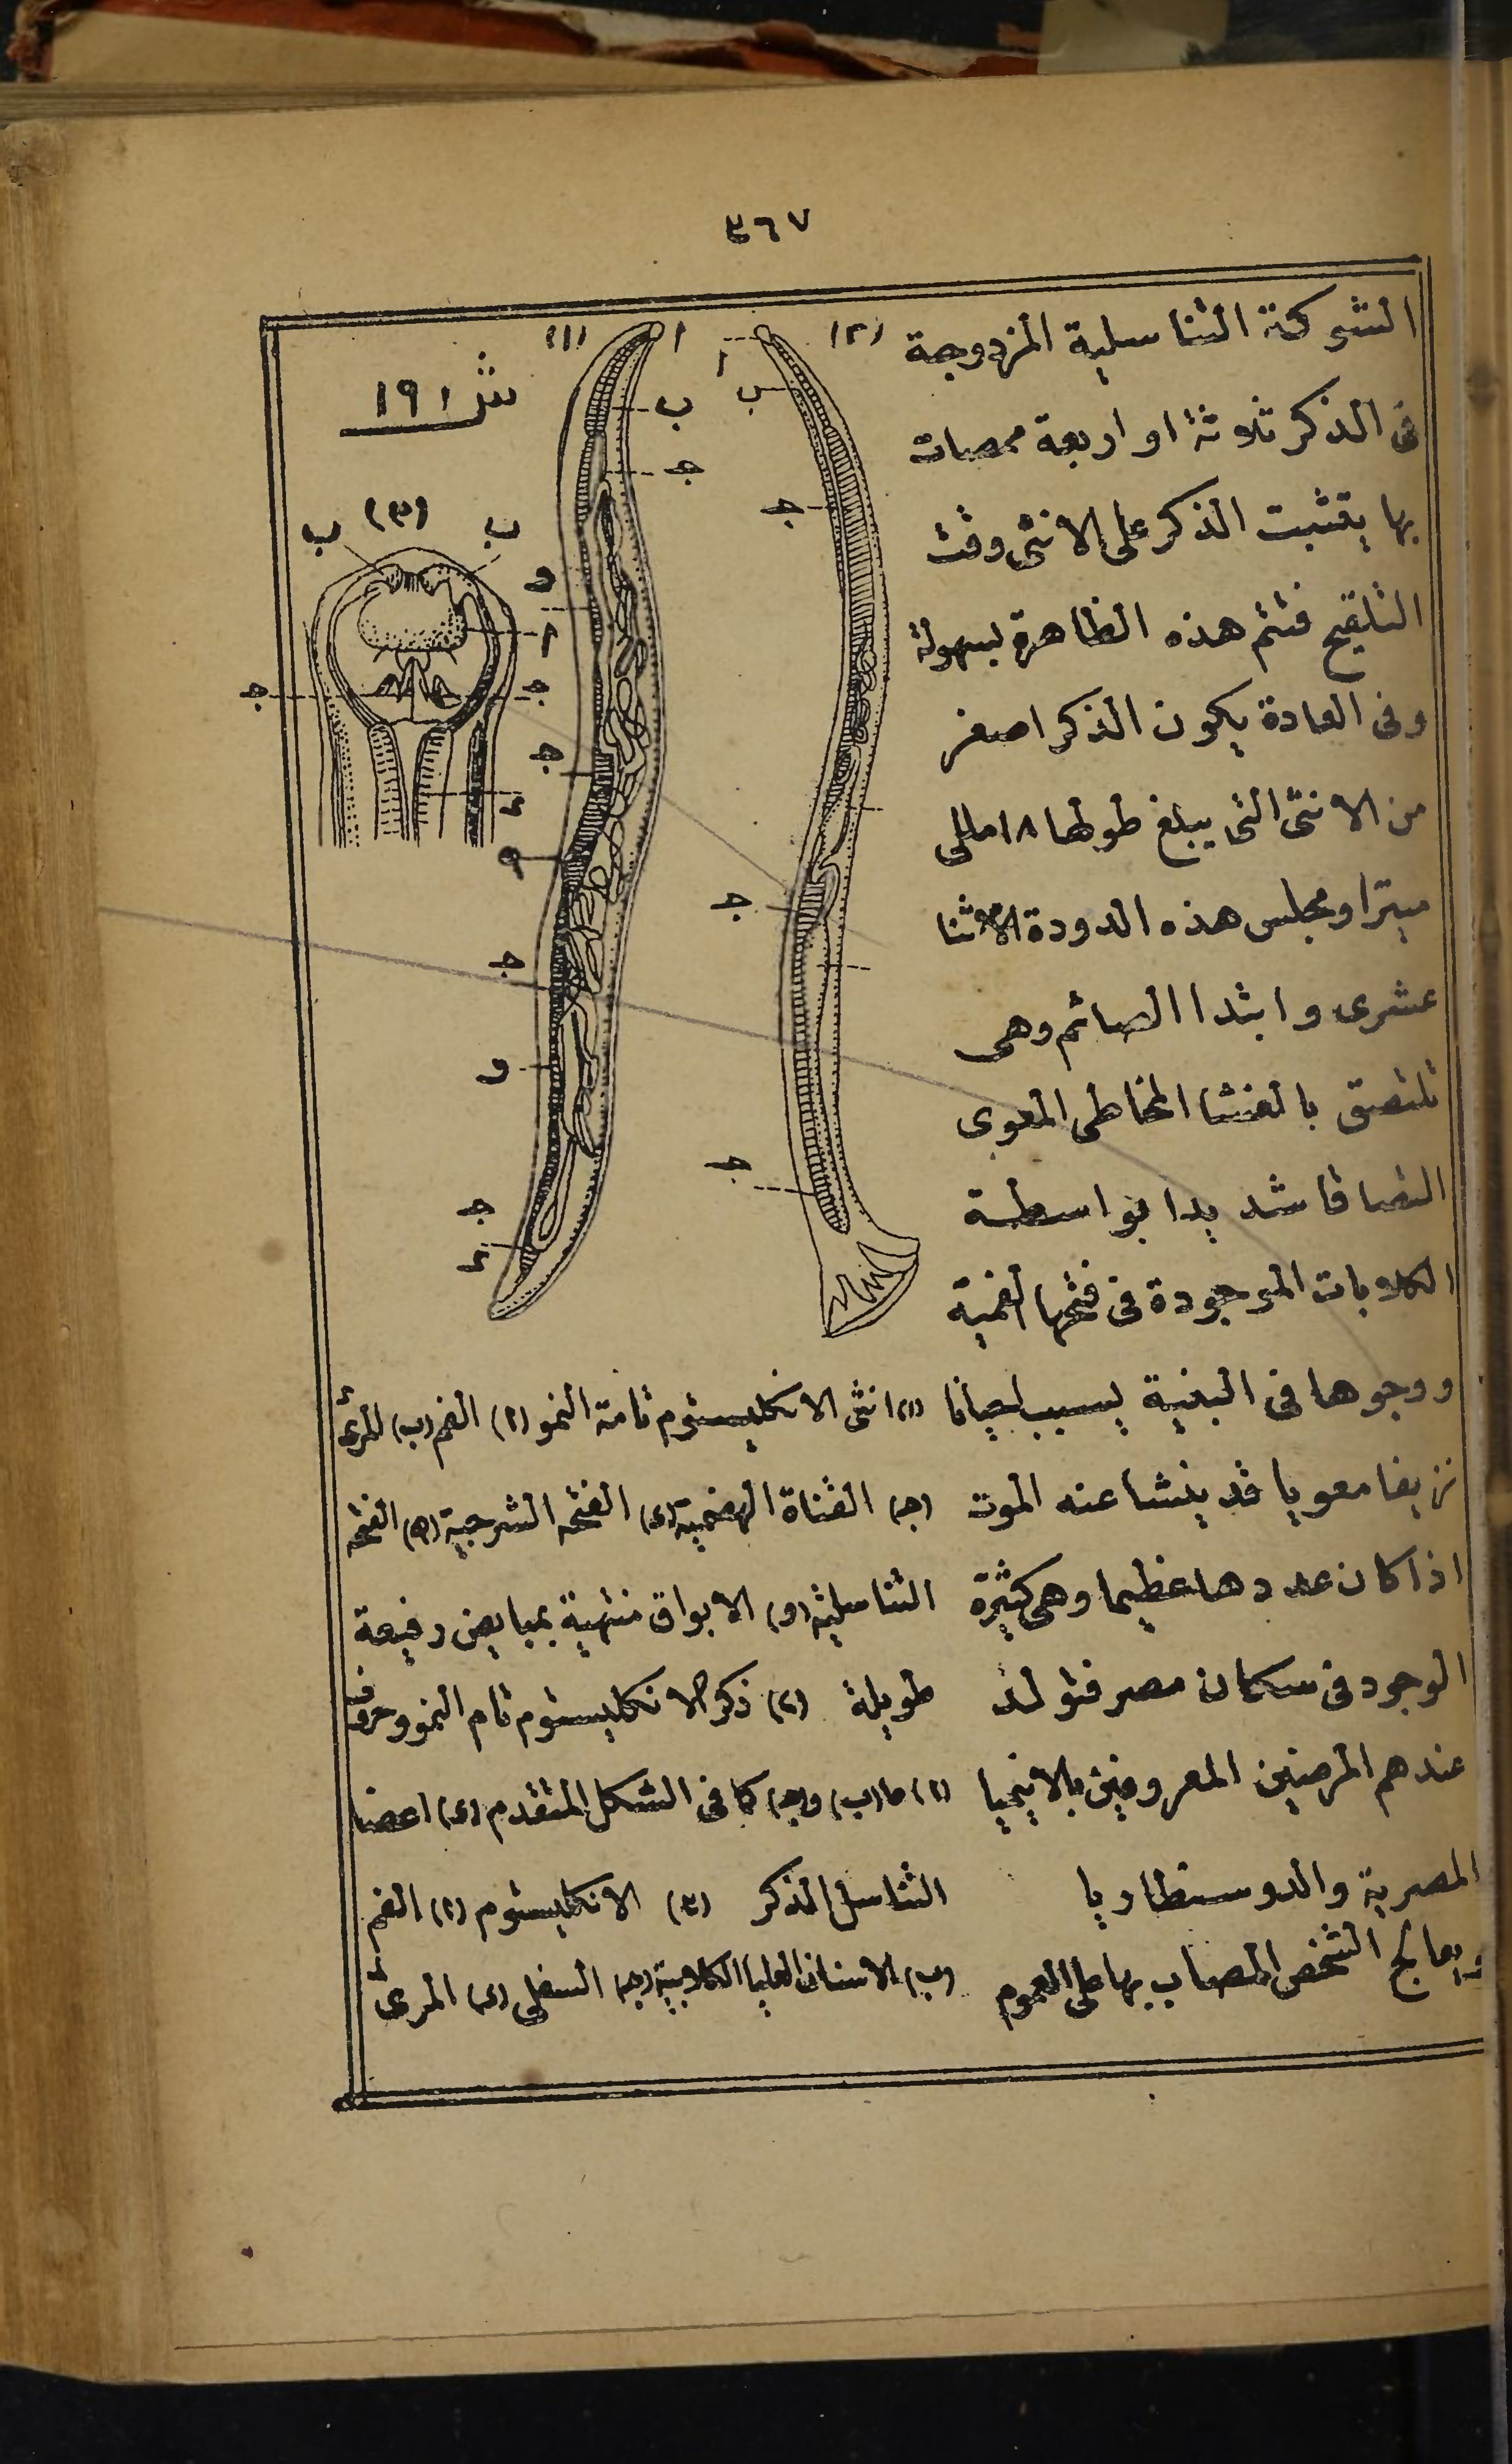 ٣٦٧
الشوكة التناسلية المزدوجة
فى الذكر ثلاثة او اربعة ممصات
بها يتثبت الذكر على الانثى وقت
التلقيح فتتم هذه الظاهرة بسهولة
وفى العادة يكون الذكر اصغر
من الانثى التى يبلغ طولها ١٨ مللى
ميترا ومجلس هذه الدودة الاثنا
عشرى وابتدا الصائم وهى
تلتصق بالغشا المخاطى المعوى
التصاقا شديدا بواسطة
الكلابات الموجودة فى فتحتها الفمية
ووجوها فى البنية يسبب احيانا
نزيفا معويا قد ينشا عنه الموت
اذا كان عددها عظيما وهى كثيرة
الوجود فى سكان مصر فتولد
عندهم المرضين المعروفين بالانيميا
المصرية والدوسنطاريا
ويعالج الشخص المصاب بها على العموم
شـ ١٩١
(١)
ا
ب
ج
و
ج
ه
ج
و
ج
ء
(٢)
ا
ب
ج
ج
ج
(٣)
ب
ب
ا
ج
ج
ء
(١) انثى الانكليستوم تامة النمو (ا) الفم (ب) المرئ
(ج) القناة الهضمية (ى) الفتحه الشرجية (ه) الفتحه
التناسلية (و) الابواق منتهية بمبايض رفيعة
طويلة (٢) ذكر الانكليستوم تام النمو وحروفه
(ا) ها (ب) و(ج) كما فى الشكل المتقدم (ى) اعضا
التناسل المذكر (٣) الانكليستوم (ا) الفم
(ب) الاسنان العليا الكلابية (ج) السفلى (ى) المرئ